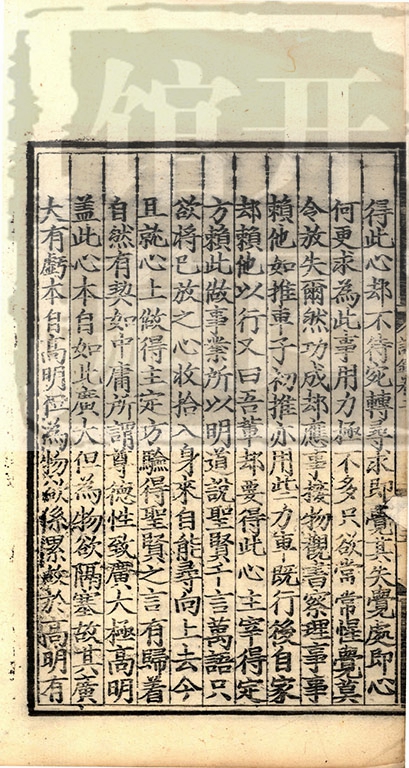 得此心却不待宛轉尋求即覺其失覺處即心
何更求為此事用力極不多只欲常常惺覺莫
令放失爾然功成却應事接物觀書察理事事
賴他如推車子初推亦用些力車既行後自家
却賴他以行又曰吾輩却要得此心主宰得定
方賴此做事業所以明道說聖賢千言萬語只
欲將已放之心收拾入身來自能尋向上去今
且就心上做得主定方驗得聖賢之言有歸着
自然有契如中庸所謂尊德性致廣大極高明
盖此心本自如此廣大但為物欲隔塞故其廣
大有虧本自高明但為物欲係累故於高明有